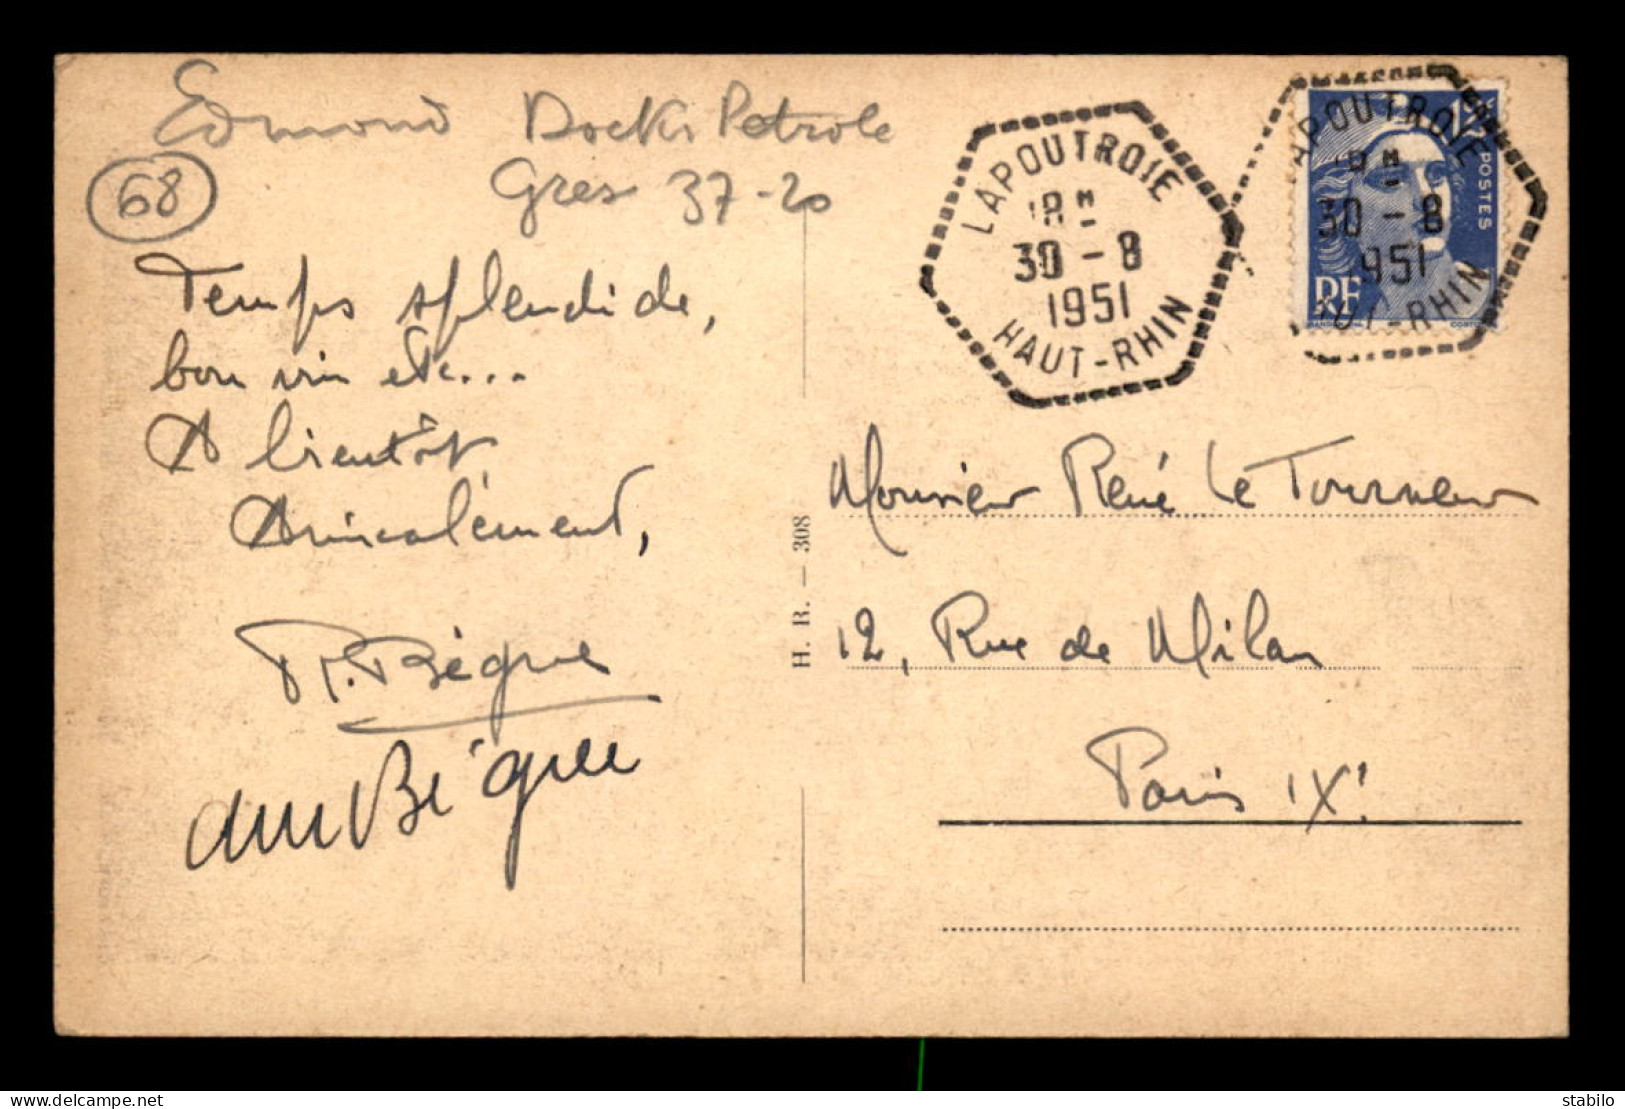 Edmond Docks Petrole
68
Gres 37-20
Temps splendide,
bon vin etc...
A bientôt,
Amicalement,
R. Bègue
Bègue
H. R. — 308
LAPOUTROIE
18H
30 - 8
1951
HAUT-RHIN
LAPOUTROIE
18H
30 - 8
1951
HAUT-RHIN
POSTES
RF
Monsieur René Le Tourneur
12, Rue de Milan
Paris IX.
delcampe.net
stabilo